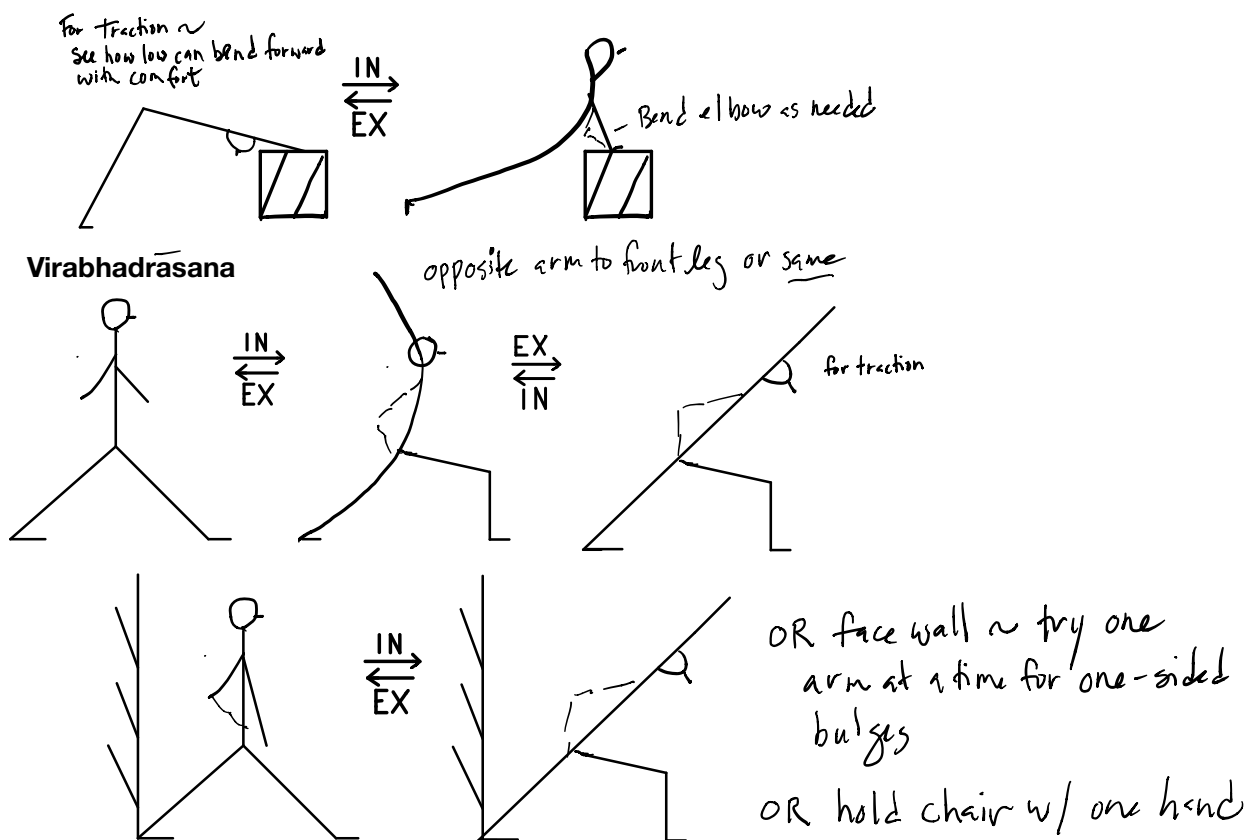 For traction ~
see how low can bend forward
with comfort
IN
EX
Bend elbow as needed
Virabhadrāsana
opposite arm to front leg or same
IN
EX
EX
IN
for traction
IN
EX
OR face wall ~ try one
arm at a time for one-sided
bulges
OR hold chair w/ one hand